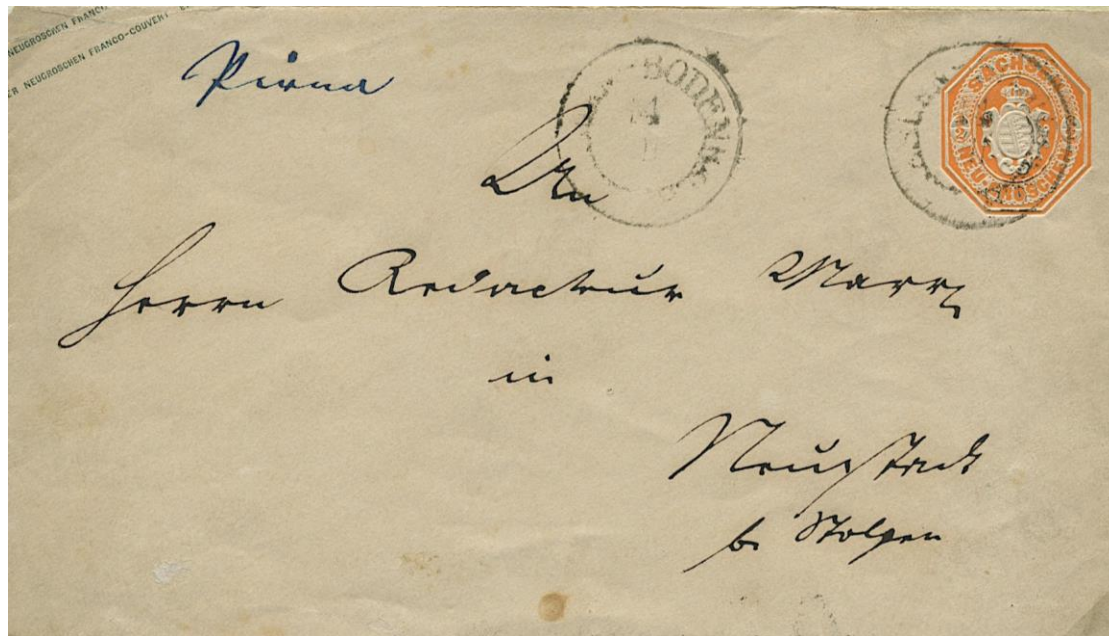 NEUGROSCHEN FRANCO-
ER NEUGROSCHEN FRANCO-COUVERT
Pirna
BODENB
SACHSEN
NEU-GROSCHEN
An
Herrn Redacteur Marx
in
Neustadt
b. Stolpen